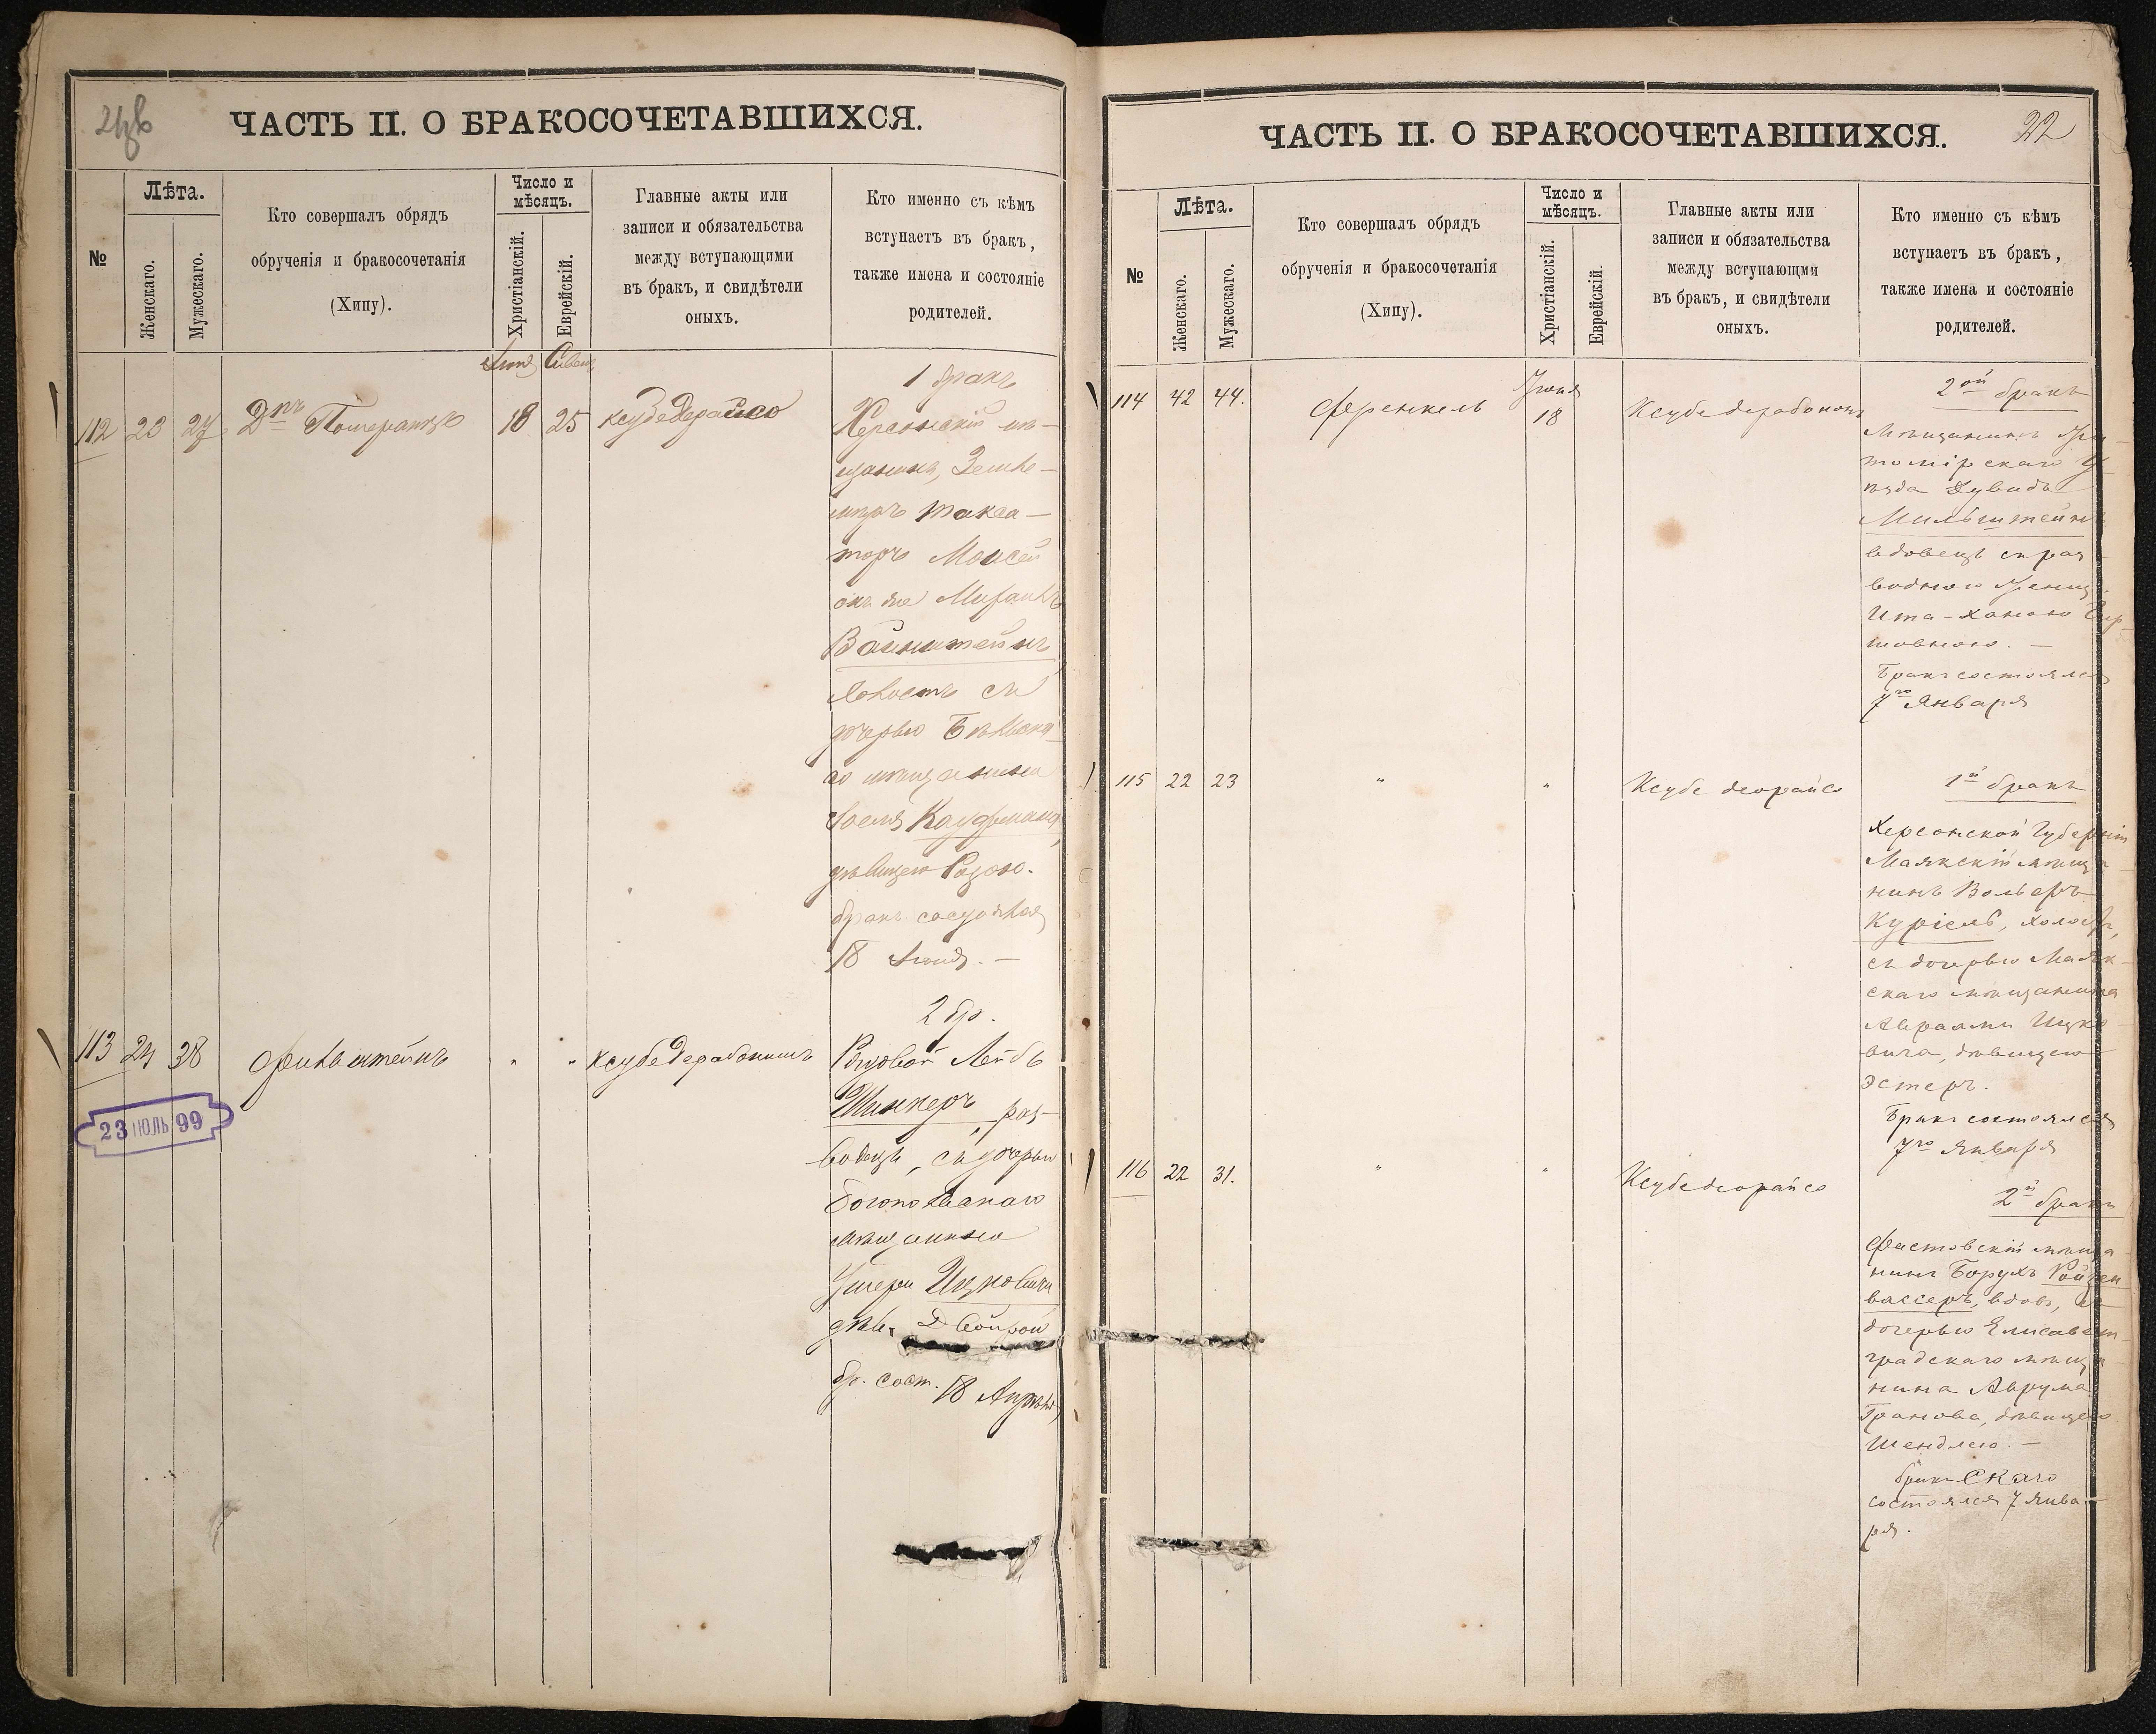 ЧАСТЬ II. О БРАКОСОЧЕТАВШИХСЯ.
№
Лѣта.
Женскаго.
Мужескаго.
Кто совершалъ обрядъ
обрученія и бракосочетанія
(Хипу).
Число и
мѣсяцъ.
Христіанскій.
Еврейскій.
Главные акты или
записи и обязательства
между вступающими
въ бракъ, и свидѣтели
оныхъ.
Кто именно съ кѣмъ
вступаетъ въ бракъ,
также имена и состояніе
родителей.
112 23 27 18 25
1 бракъ
Херсонскій мѣ-
щанинъ, Землѣ-
мѣръ такса-
торъ Моисей
онъ же
Вайнштейнъ,
съ
дочерью
мѣщанина
Кауфмана,
дѣвицею Розою.
бракъ состоялся
18 Іюня. —
2 бр.
113 24 38 Финкельштейнъ " " ксубедерабонимъ
Лейбъ
Шинкеръ, раз-
водецъ, съ дочерью
мѣщанина
Ушера Ицковича
дѣв. Двойрой
бр. сост. 18 Апрѣля
23 ІЮЛЬ 99
ЧАСТЬ II. О БРАКОСОЧЕТАВШИХСЯ.
22
№
Лѣта.
Женскаго.
Мужескаго.
Кто совершалъ обрядъ
обрученія и бракосочетанія
(Хипу).
Число и
мѣсяцъ.
Христіанскій.
Еврейскій.
Главные акты или
записи и обязательства
между вступающми
въ бракъ, и свидѣтели
оныхъ.
Кто именно съ кѣмъ
вступаетъ въ бракъ,
также имена и состояніе
родителей.
114 42 44. Френкель Іюня 18 Ксубе дерабононъ
2ой бракъ
Мѣщанинъ Жи-
томірскаго У-
ѣзда Дувидъ
Мильштейнъ
вдовецъ съ раз-
водною женщ.
Ита-Ханою
шовною. —
Бракъ состоялся
7го Января
115 22 23 " " Ксубе деорайсо
1й бракъ
Херсонской Губерніи
Маякскій мѣща-
нинъ Вольфъ
Куріель, холостъ,
съ дочерью Маяк-
скаго мѣщанина
Авраама Ицко-
вича, дѣвицею
Эстеръ.
Бракъ состоялся
7го Января
116 22 31. " " Ксубе деорайсо
2й бракъ
Фастовскій мѣща-
нинъ Борухъ Ройзен-
вассеръ, вдов., съ
дочерью Елисавет-
градскаго мѣща-
нина Аврума
Гранова, дѣвицею
Шендлею. —
бракъ
состоялся 7 Янва-
ря.